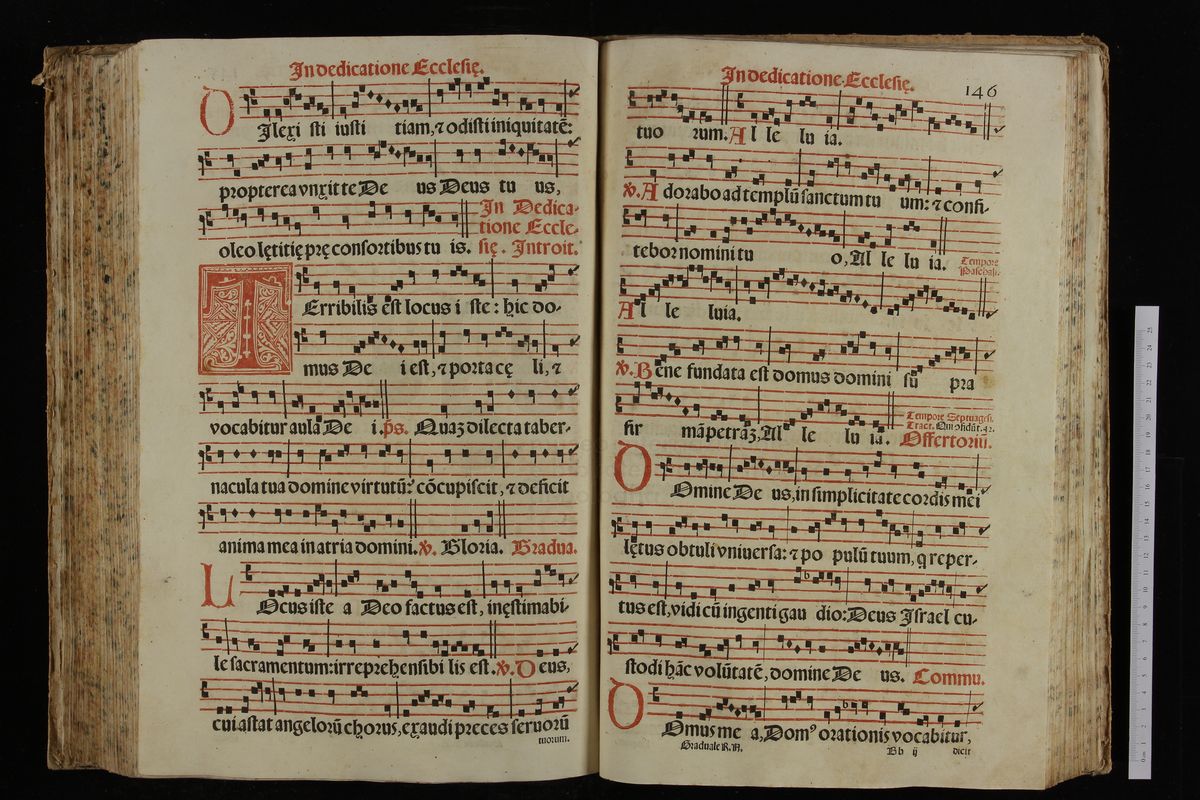 In dedicatione Ecclesię.
DIlexi sti iusti tiam, ⁊ odisti iniquitatē:
propterea vnxit te De us Deus tu us,
oleo lętitię prę consortibus tu is. In Dedica-
tione Eccle-
się. Introit.
TErribilis est locus i ste: hic do-
mus De i est, ⁊ porta cę li, ⁊
vocabitur aula De i. ps. Quaʒ dilecta taber-
nacula tua domine virtutū: cōcupiscit, ⁊ deficit
anima mea in atria domini. ℣. Gloria. Gradua.
LOcus iste a Deo factus est, inęstimabi-
le sacramentum: irreprehensibi lis est. ℣. Deus,
cui astat angelorū chorus, exaudi preces seruorū
tuorum.
In dedicatione Ecclesię.
146
tuo rum. Al le lu ia.
℣. Adorabo ad templū sanctum tu um: ⁊ confi-
tebor nomini tu o, Al le lu ia. Tempore
Paschali.
Al le luia.
℣. Bene fundata est domus domini sū pra
fir mā petraʒ, Al le lu ia.
Tempore Septuagesi.
Tract.
Offertoriū.
DOmine De us, in simplicitate cordis mei
lętus obtuli vniuersa: ⁊ po pulū tuum, q reper-
tus est, vidi cū ingenti gau dio: Deus Israel cu-
stodi hāc volūtatē, domine De us. Commu.
DOmus me a, Domꝰ orationis vocabitur,
Graduale R. A. Bb ij dicit